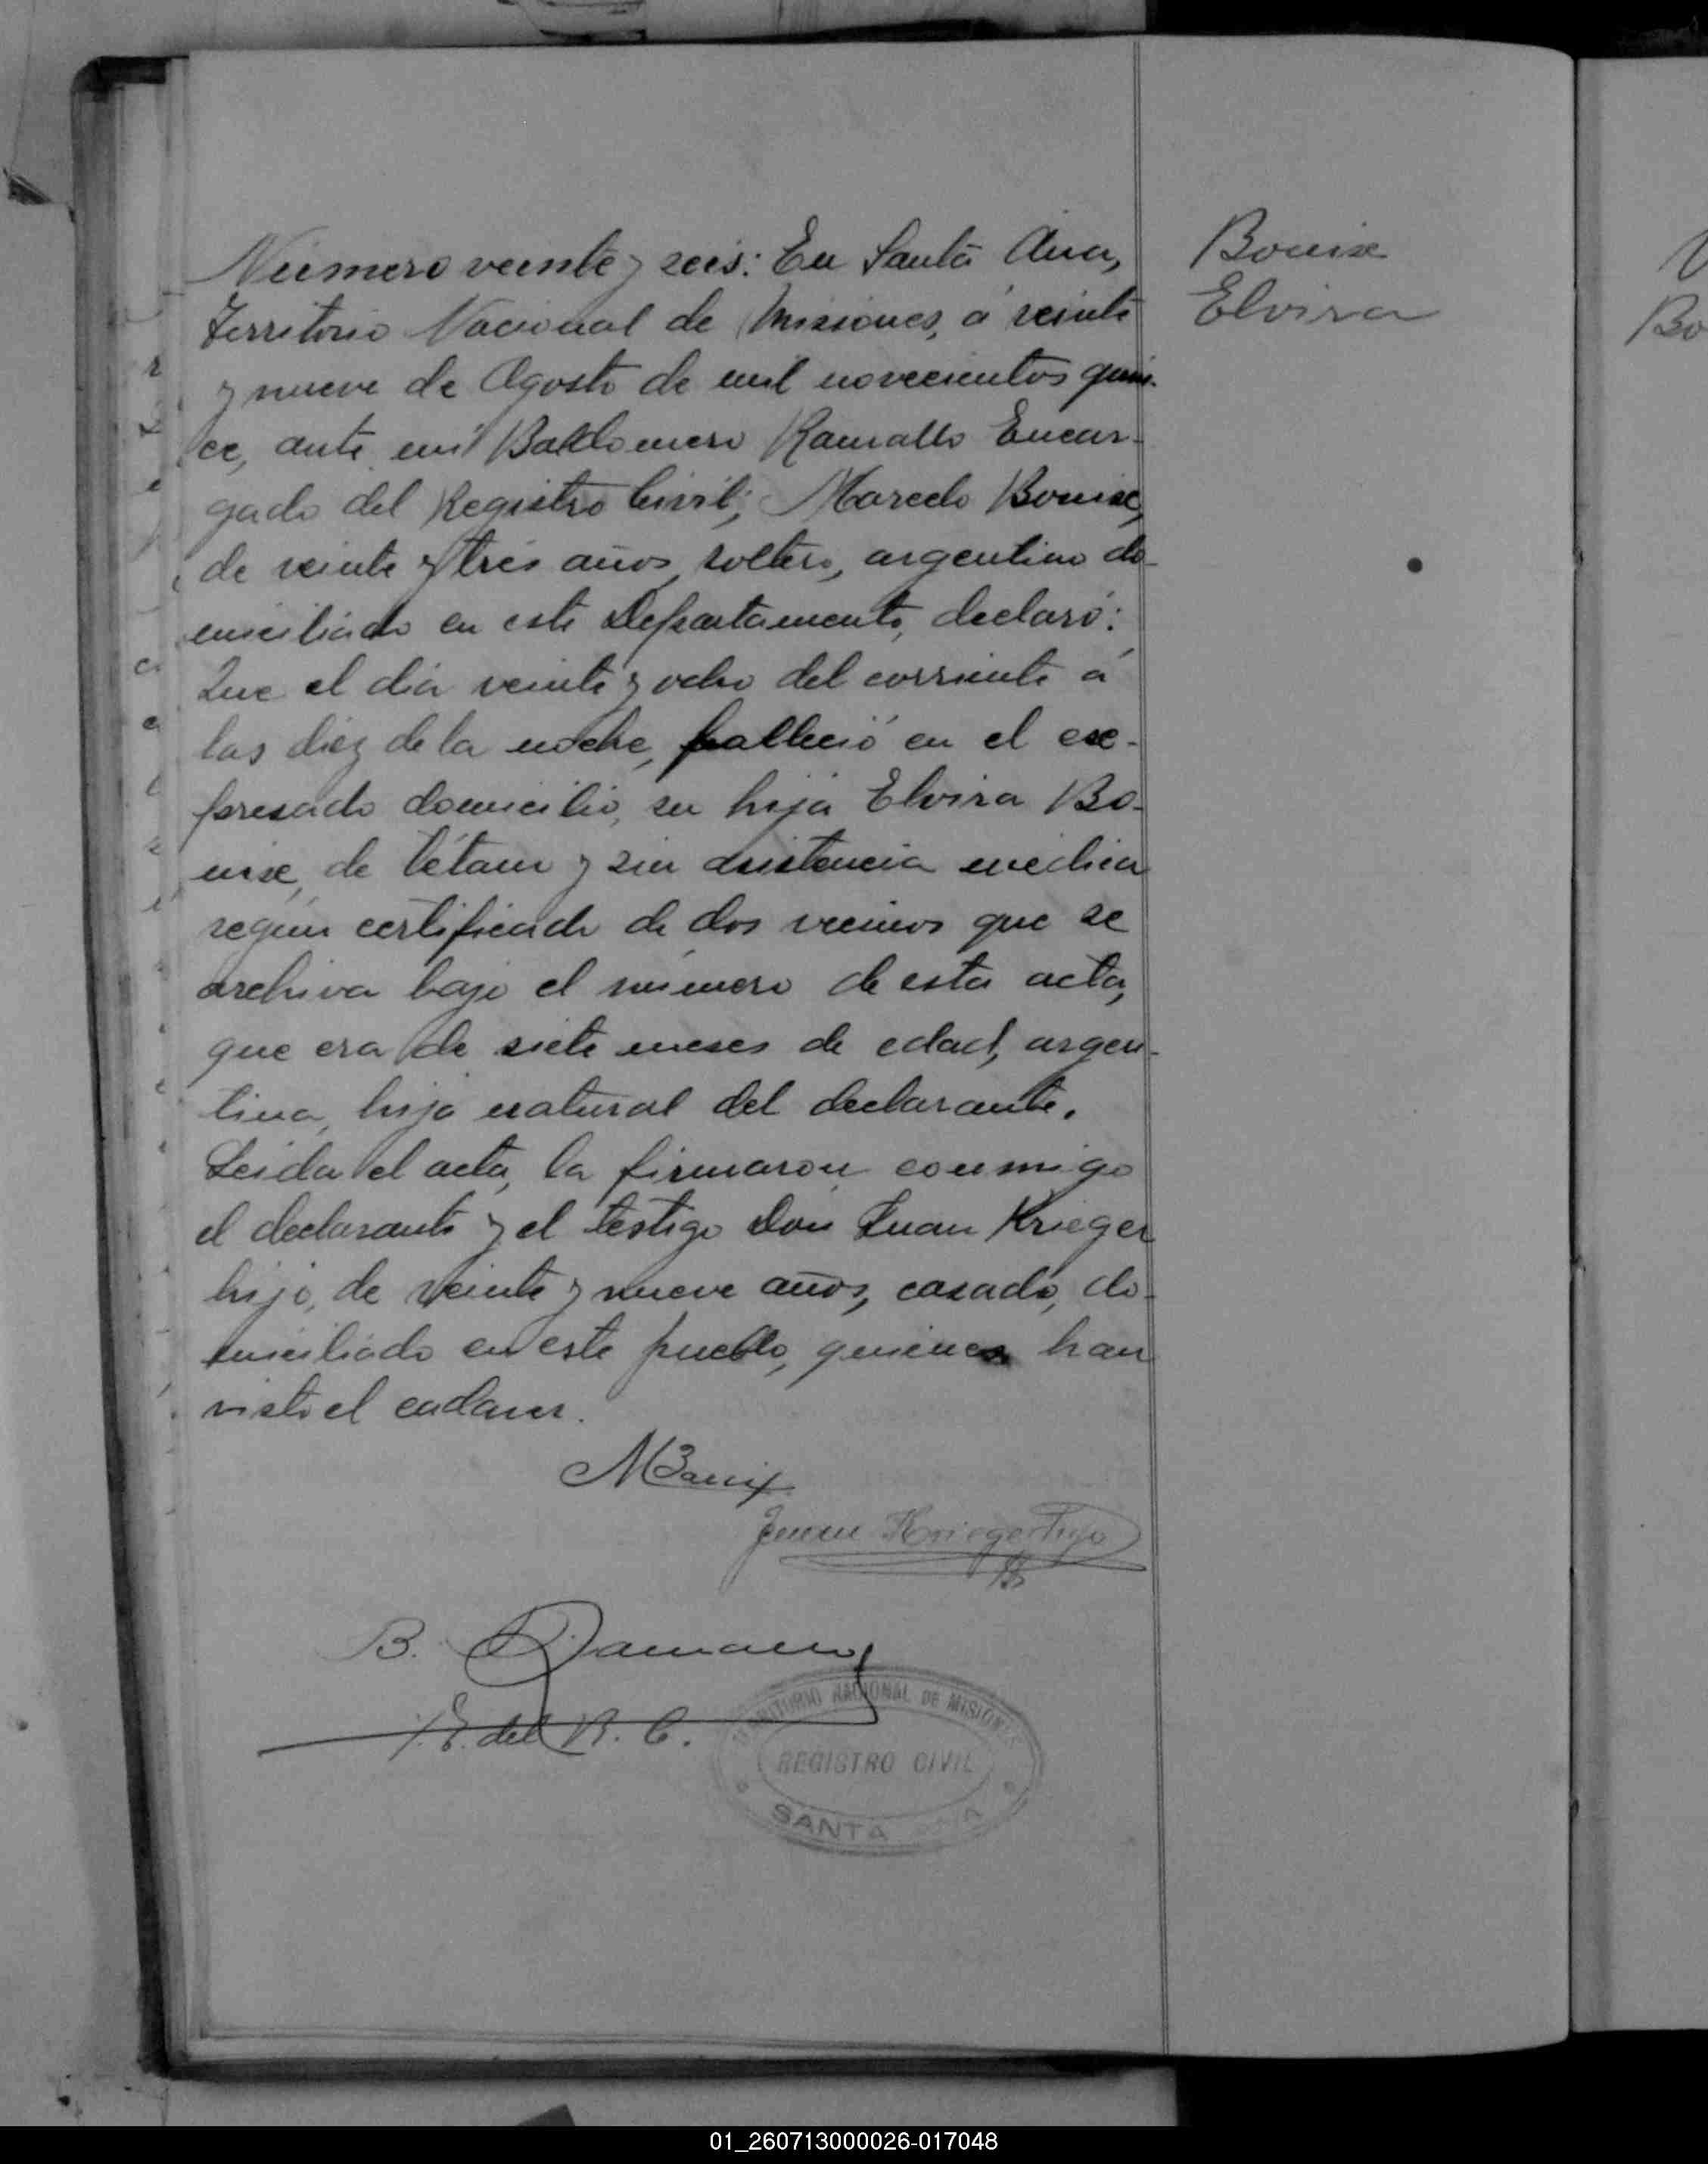 Número veinte y seis: En Santa Ana,
Territorio Nacional de Misiones, á veinte
y nueve de Agosto de mil novecientos quin-
ce, ante mí Baldomero Ramallo Encar-
gado del Registro Civil; Marcelo Bouix,
de veinte y tres años, soltero, argentino do-
miciliado en este Departamento, declaró:
Que el día veinte y ocho del corriente á
las diez de la noche, falleció en el ex-
presado domicilio, su hija Elvira Bo-
uix, de tétano y sin asistencia médica
según certificado de dos vecinos que se
archiva bajo el número de esta acta,
que era de siete meses de edad, argen-
tina, hija natural del declarante.
Leida el acta, la firmaron conmigo
el declarante y el testigo Don Juan Krieger
hijo, de veinte y nueve años, casado, do-
miciliado en este pueblo, quienes han
visto el cadaver.
MBouix
Juan Krieger hijo
B. Ramallo
E. del R. C.
TERRITORIO NACIONAL DE MISIONES
REGISTRO CIVIL
SANTA ANA
Bouix
Elvira
Bo
01_260713000026-017048